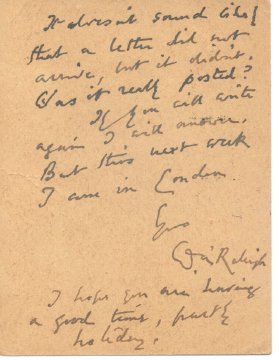 It doesn't sound likely
that a letter did not
arrive, but it didn't.
Was it really posted?
If you will write
again I will answer.
But this next week
I am in London.
Yrs
Raleigh
I hope you are having
a good time, partly
holiday.